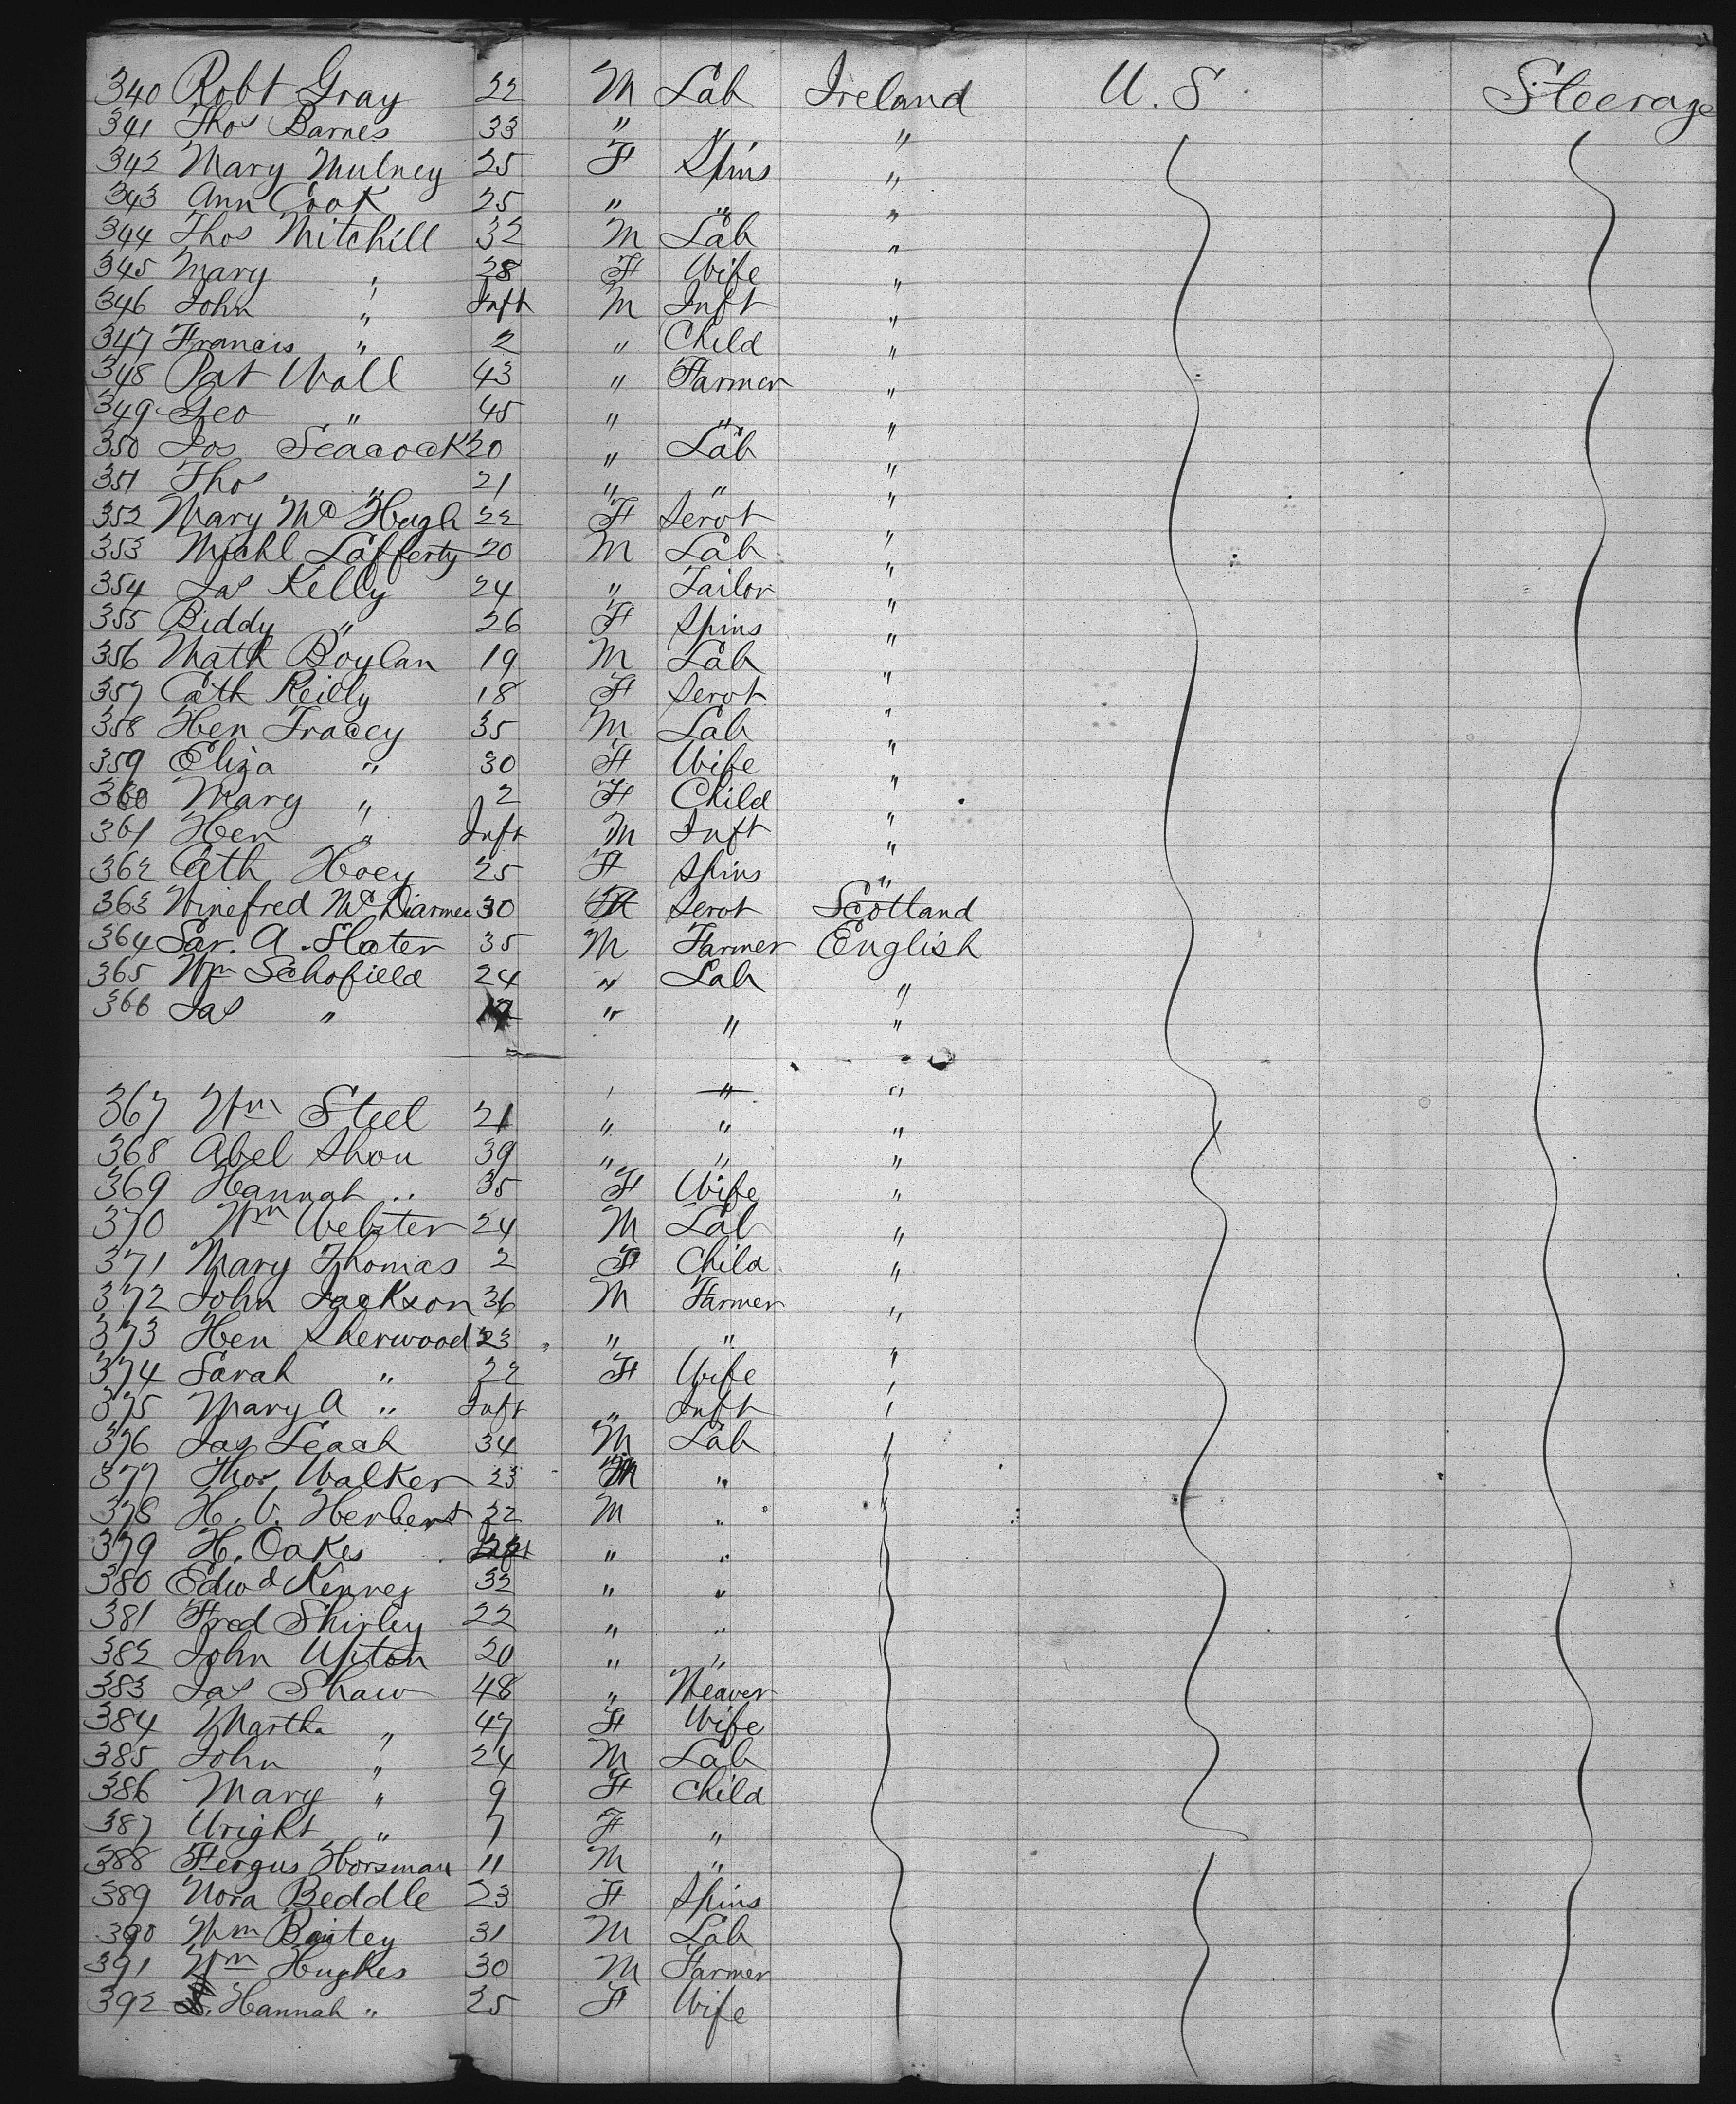 340 Robt Gray 22 M Lab Ireland U. S Steerage
341 Thos Barnes 33 " " "
342 Mary Mulney 25 F Spins "
343 Ann Cook 25 " " "
344 Thos Mitchill 32 M Lab "
345 Mary " 28 F Wife "
346 John " Inft M Inft "
347 Francis " 2 " Child "
348 Pat Wall 43 " Farmer "
349 Geo " 45 " " "
350 Jos Seacock 20 " Lab "
351 Thos " 21 " " "
352 Mary Mc Hugh 22 F Servt "
353 Michl Lafferty 20 M Lab "
354 Jas Kelly 24 " Tailor "
355 Biddy " 26 F Spins "
356 Math Boylan 19 M Lab "
357 Cath Reilly 18 F Servt "
358 Hen Tracey 35 M Lab "
359 Eliza " 30 F Wife "
360 Mary " 2 F Child "
361 Hen " Inft M Inft "
362 Cath Hoey 25 F Spins "
363 Winefred McDiarmee 30 Servt Scotland
364 Sar. A. Slater 35 M Farmer English
365 Wm Schofield 24 " Lab "
366 Jas " " " "
367 Wm Steel 21 " " "
368 Abel Shou 39 " " "
369 Hannah " 35 F Wife "
370 Wm Webster 24 M Lab "
371 Mary Thomas 2 F Child "
372 John Jackson 36 M Farmer "
373 Hen Sherwood 23 " " "
374 Sarah " 22 F Wife "
375 Mary A " Inft " Inft "
376 Jas Leach 34 M Lab "
377 Thos Walker 23 M "
378 H. V. Herbert 32 M "
379 H. Oakes " "
380 Edwd Kenney 32 " "
381 Fred Shirley 22 " "
382 John Upton 20 " "
383 Jas Shaw 48 " Weaver
384 Martha " 47 F Wife
385 John " 24 M Lab
386 Mary " 9 F Child
387 Wright " 7 F "
388 Fergus Horsman 11 M "
389 Nora Beddle 23 F Spins
390 Wm 31 M Lab
391 Wm Hughes 30 M Farmer
392 Hannah " 25 F Wife